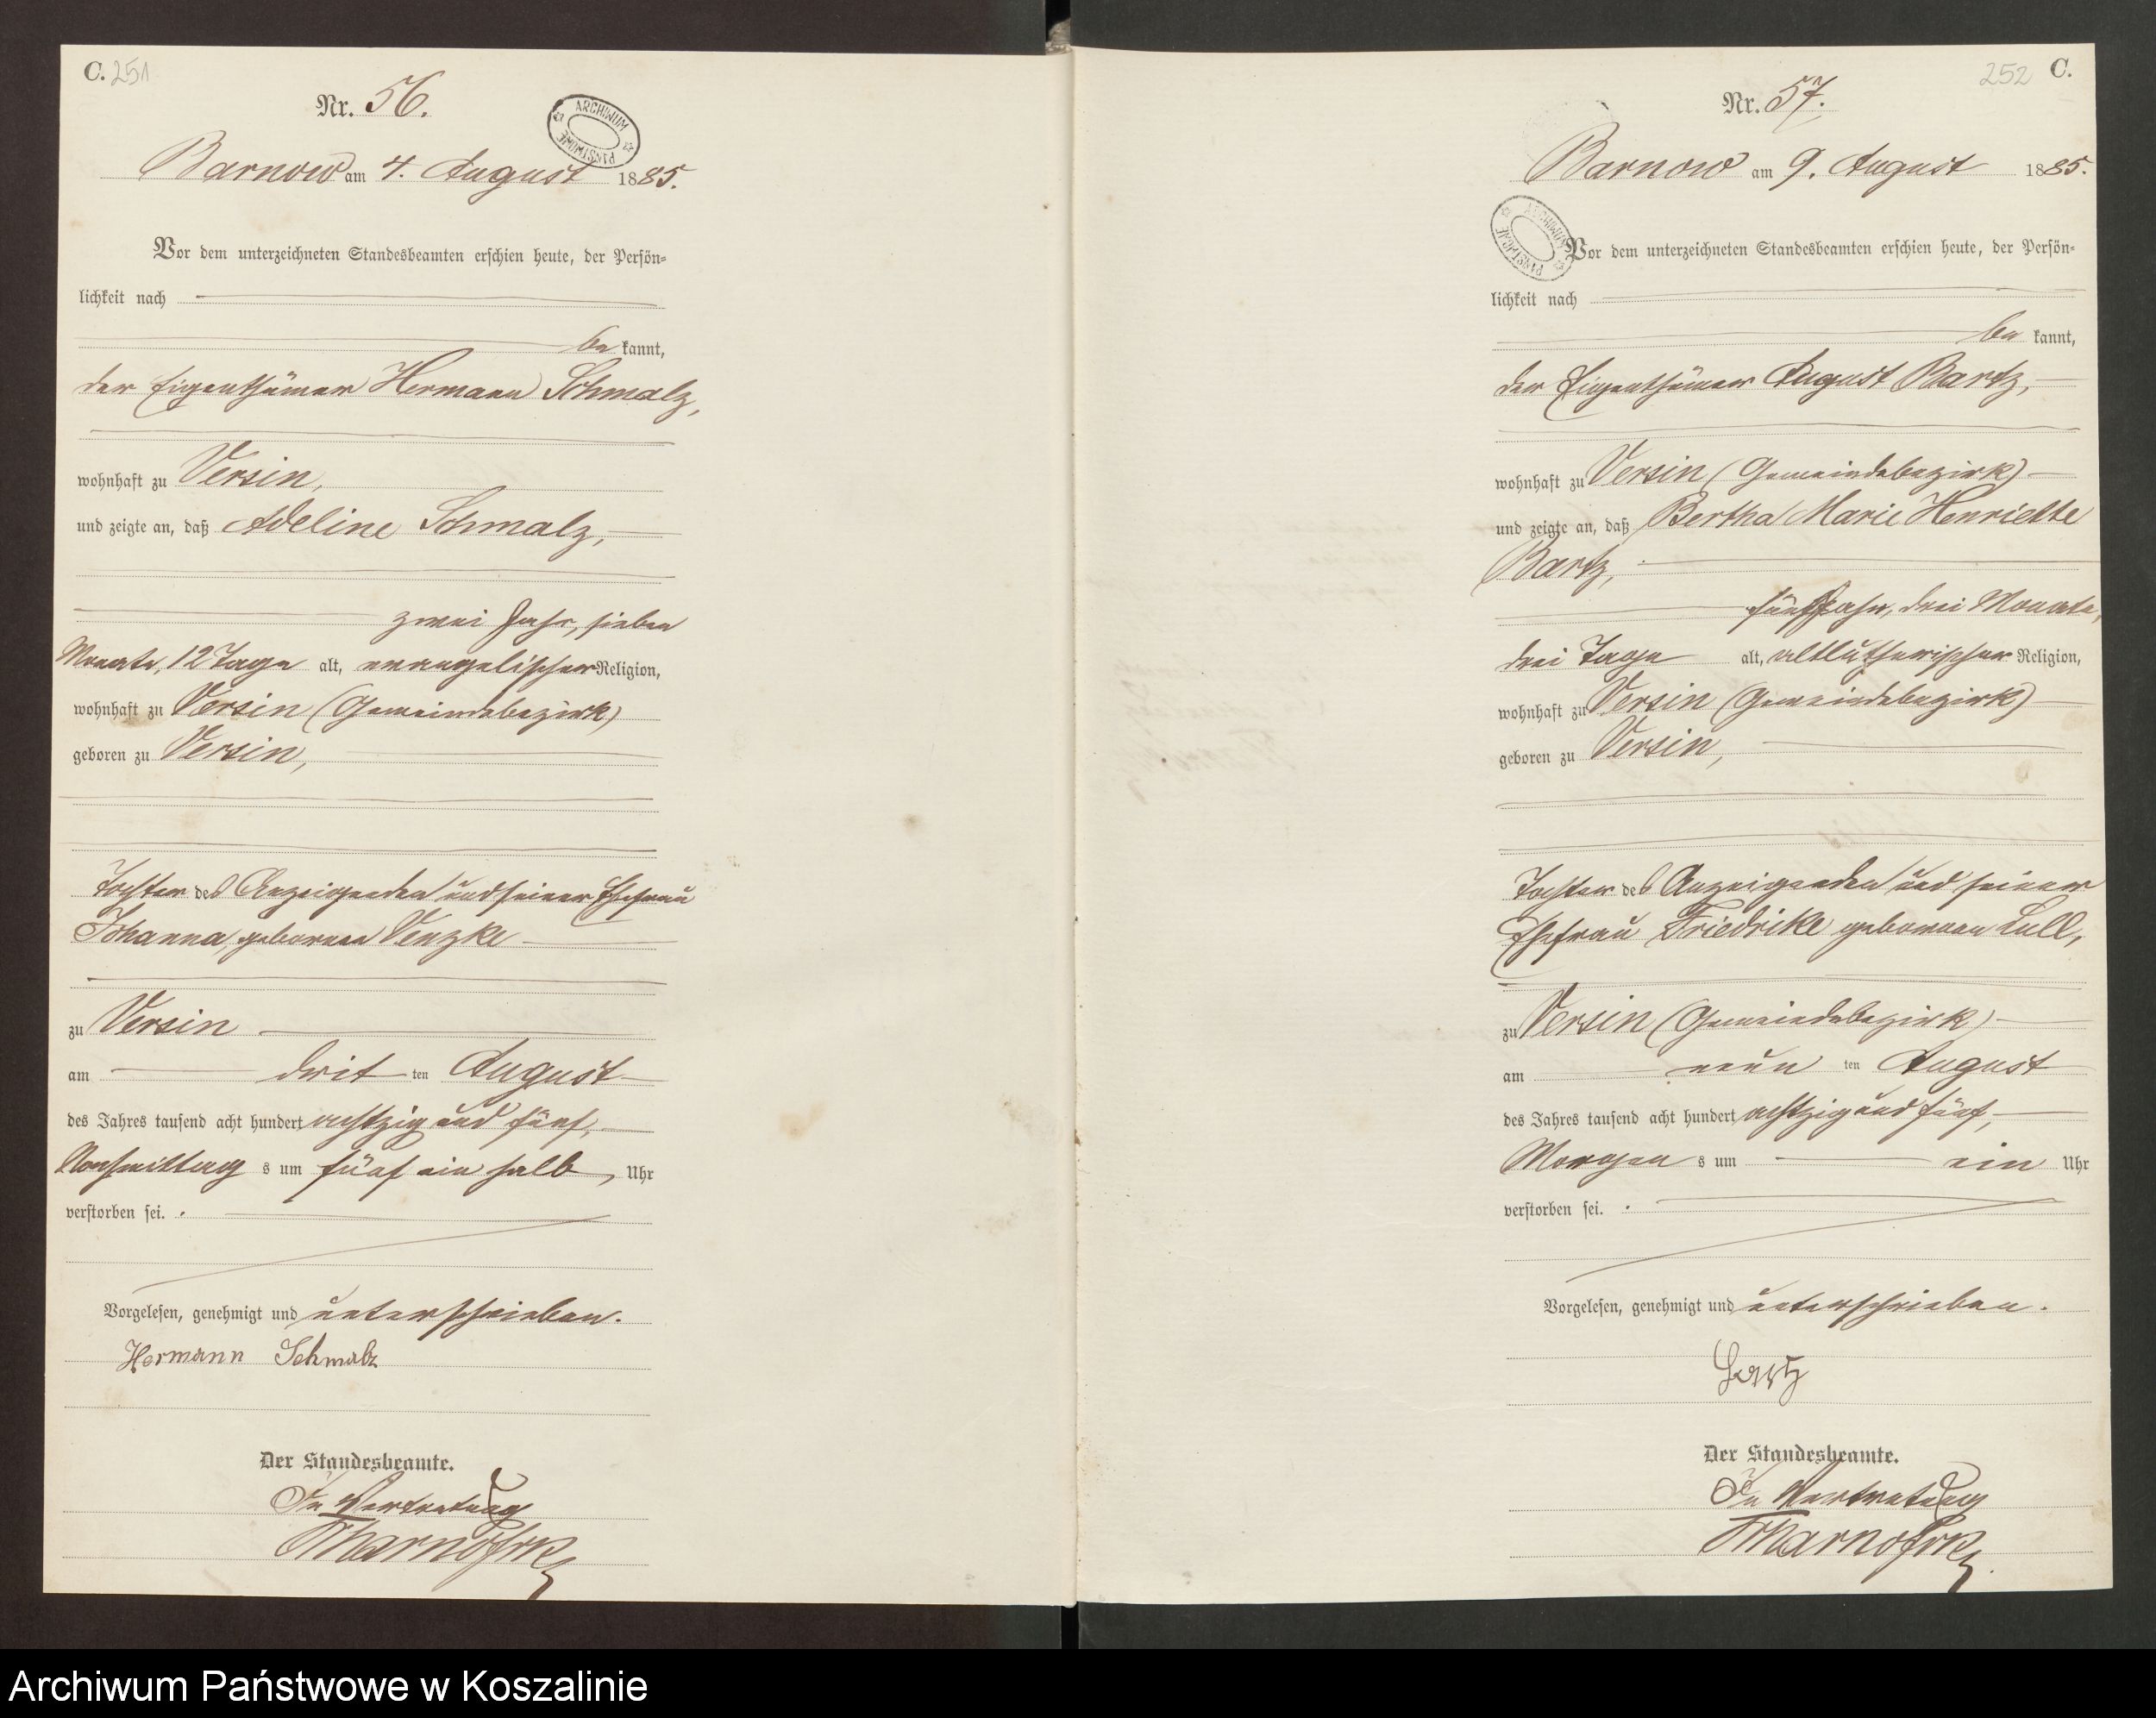 C. 251
Nr. 56.
ARCHIWUM PAŃSTWOWE
Barnow am 4. August 1885.
Vor dem unterzeichneten Standesbeamten erschien heute, der Persön-
lichkeit nach
be kannt,
der Eigenthümer Hermann Schmalz,
wohnhaft zu Versin,
und zeigte an, daß Adeline Schmalz,
zwei Jahr, sieben
Monate, 12 Tage alt, evangelischer Religion,
wohnhaft zu Versin (Gemeindebezirk)
geboren zu Versin,
Tochter des Anzeigenden und seiner Ehefrau
Johanna, geborenen Venzke
zu Versin
am drit ten August
des Jahres tausend acht hundert achtzig und fünf,
Nachmittag s um fünf ein halb, Uhr
verstorben sei.
Vorgelesen, genehmigt und unterschrieben.
Hermann Schmalz
Der Standesbeamte.
In Vertretung
252 C.
Nr. 57.
Barnow am 9. August 1885.
ARCHIWUM PAŃSTWOWE
Vor dem unterzeichneten Standesbeamten erschien heute, der Persön-
lichkeit nach
be kannt,
der Eigenthümer August Bartz,
wohnhaft zu Versin (Gemeindebezirk)
und zeigte an, daß Bertha Marie Henriette
Bartz,
fünf Jahr, drei Monate,
drei Tage alt, altlutherischer Religion,
wohnhaft zu Versin (Gemeindebezirk)
geboren zu Versin,
Tochter des Anzeigenden und seiner
Ehefrau Friedrike geborenen Lull,
zu Versin (Gemeindebezirk)
am neun ten August
des Jahres tausend acht hundert achtzig und fünf,
Morgen s um ein Uhr
verstorben sei.
Vorgelesen, genehmigt und unterschrieben.
Bartz
Der Standesbeamte.
In Vertretung
Archiwum Państwowe w Koszalinie